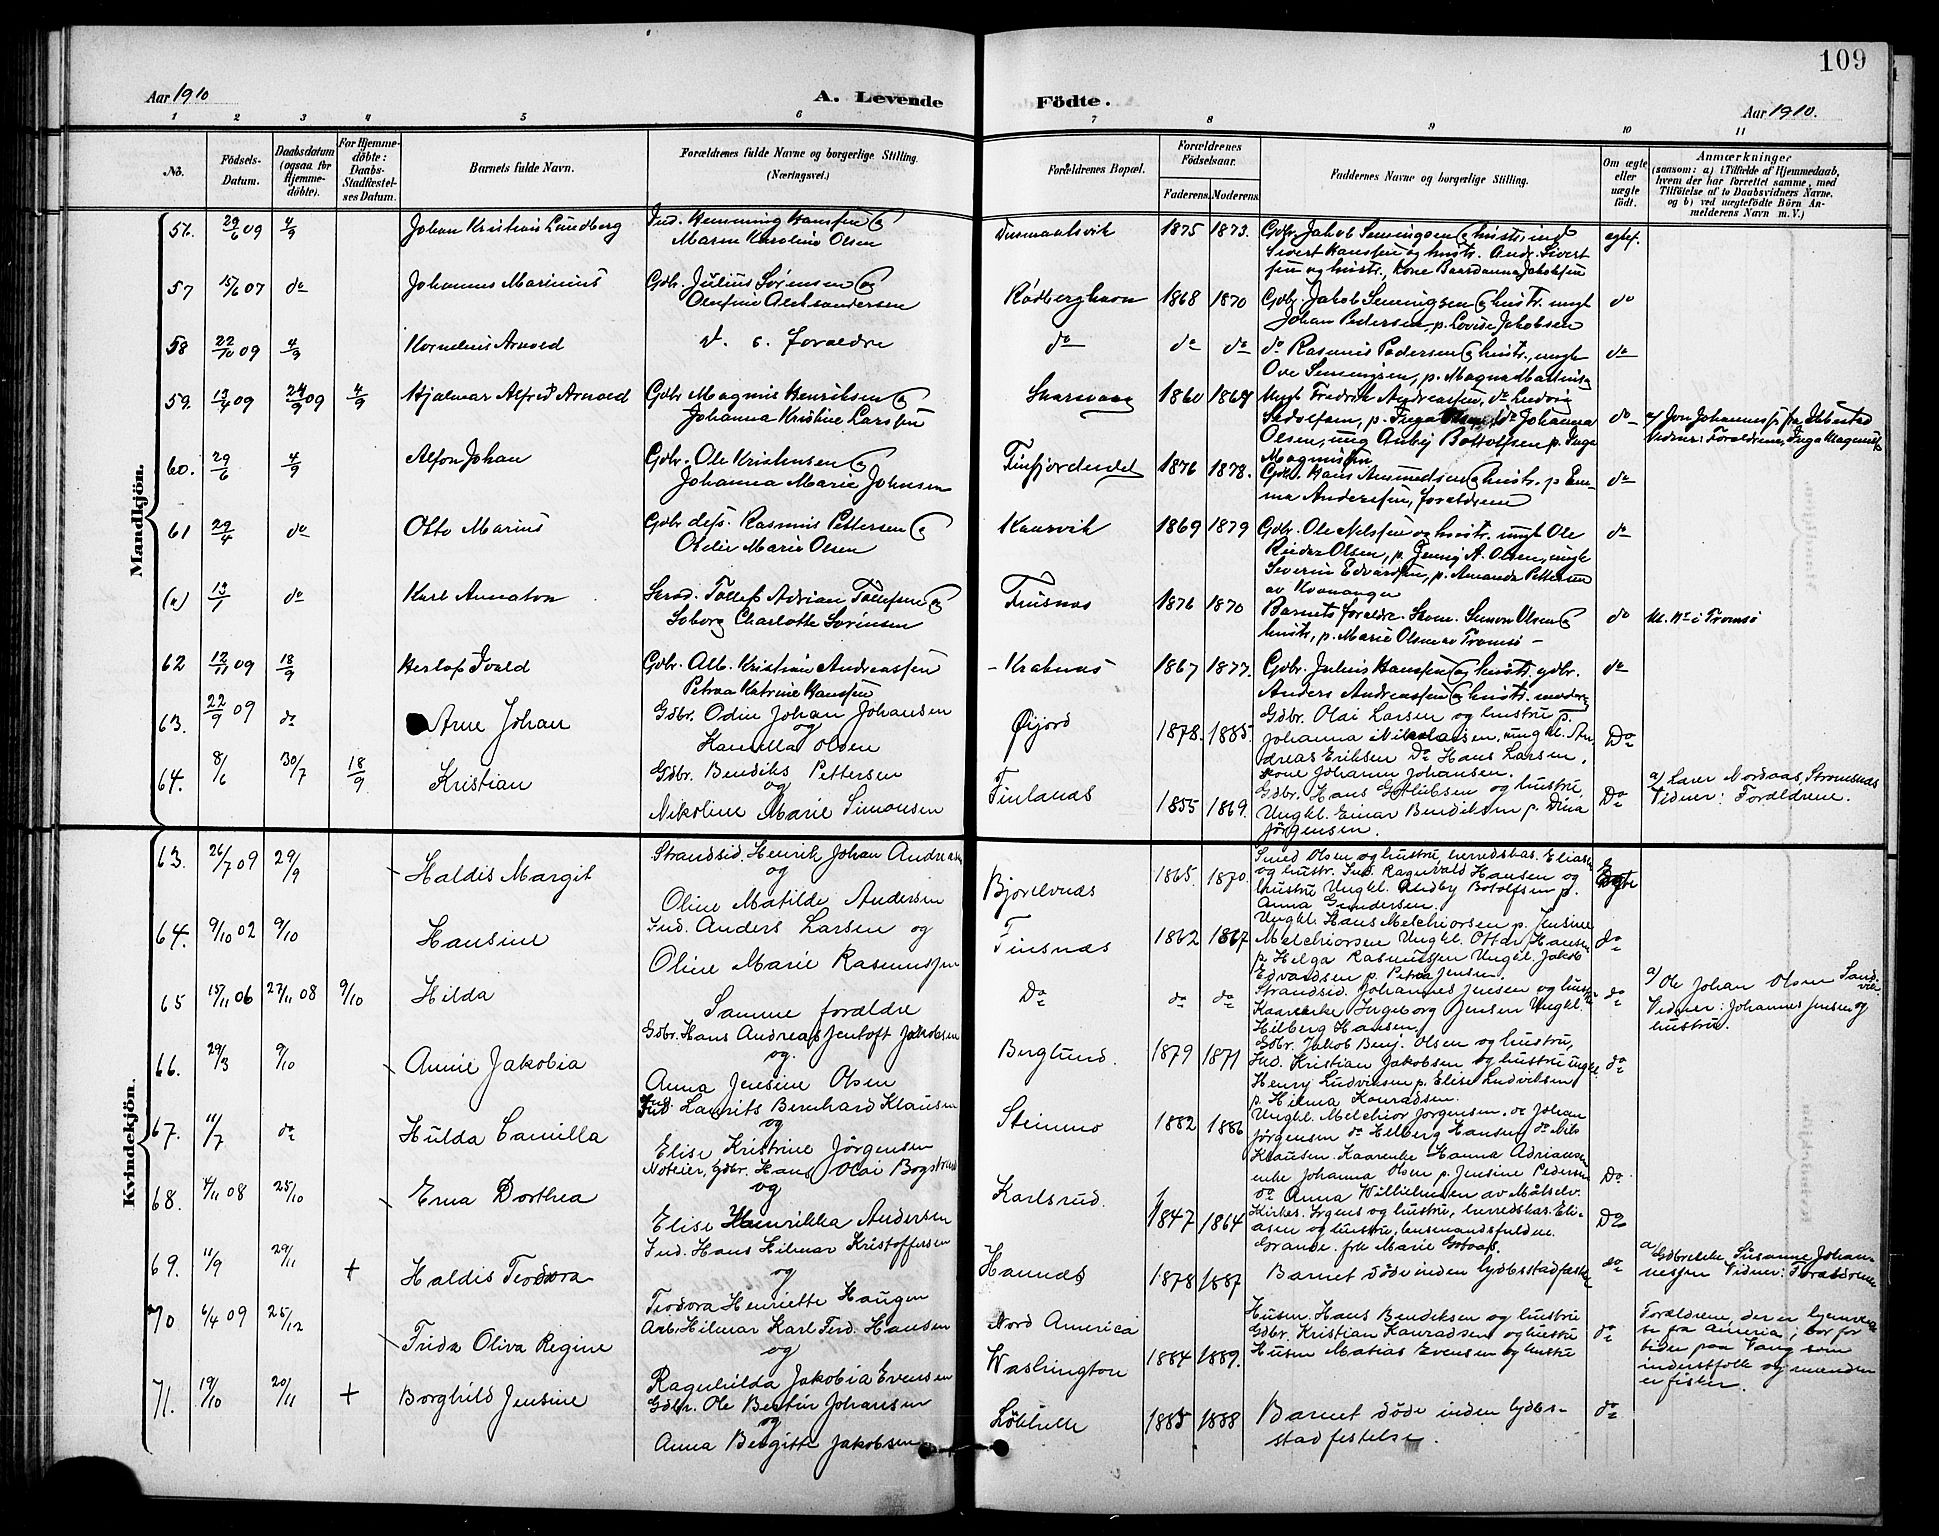 109
Aar 1910
A. Levende
Födte.
Aar 1910.
1 2 3 4 5 6 7 8 9 10 11
No.
Födsels-Datum.
Daabsdatum (ogsaa for Hjemme-döbte).
For Hjemme-döbte: Daabs-Stadfestel-ses Datum.
Barnets fulde Navn.
Forældrenes fulde Navne og borgerlige Stilling.
(Næringsvei.)
Forældrenes Bopæl.
Forældrenes Födselsaar.
Faderens. Moderens.
Faddernes Navne og borgerlige Stilling.
Om ægte eller uægte födt.
Anmærkninger
(saasom: a) i Tilfælde af Hjemmedaab, hvem der har forrettet samme, med Tilföielse af to Daabsvidners Navne, og b) ved uægtefödte Börn An-melderens Navn m. V.)
Mandkjön.
56. 29/6 09 4/9 Johan Kristians Lundberg Ind. Hemming Hanssen og
Maren Karoline Olsen 1875 1873. Gdbr. Jakob Simingsen og hustr., ind
Sivert Hanssen og hustr. Andr. Sivert
sen og hustr., kone Jakobsen
57 15/6 07 do Johannes Marinius Gdbr. Julius Sørensen og
Olufine Aleksandersen Rødberghavn 1868 1870 Gdbr. Jakob Simingsen og hustr. ungk
Johan Pedersen, p. Lovise Jakobsen do
58 22/10 09 4/9 Kornelius Arnold d. s. foraldre do do do do Rasmus Pedersen og hustr., ungk
Ove Simingsen, p. Magna do
59. 13/4 09 24/9 09 4/9 Hjalmar Alfred Arnold Gdbr. Magnus Henriksen og
Johanna Kristine Larssen 1860 1869 Ungk Fredrik Andreassen, do Ludvig
Sedolfsen, p. Inga Olsen, do Johanna
Olsen, ung Botolfsen p. Inga
Magnussen do a/ Jon Johanness. fra Ibbestad
Vidner: Foraldrene, Inga Magnuss.
60. 29/6 4/9 Alfon Johan Gdbr. Ole Kristensen og
Johanna Marie Johnsen Finfjordeidet 1876 1878. Gdbr. Hans Amundsen og hustr. p Em-
ma Anderssen, foraldrene do
61 29/4 do Otto Marius Gdbr. Rasmus Pettersen og
Odelie Marie Olsen Kaarvik 1869 1879 Gdbr. Ole Nelssen og hustr. ungk Ole
Reider Olsen, p. Jenny A. Olsen, ungk
Severin Edvardsen, p. Amanda Pettersen
av Kvænangen do
(a) 13/1 do Karl Annaton Skrad. Tollef Adrian Tollefsen og
Soborg Charlotte Sørensen Finsnæs 1876 1870 Barnets foraldre. Skom. Simon Olsen og
hustr., p. Marie Olsen av Tromsø – do Ut. Nr i Tromsø
62 12/11 09 18/9 Herlof Ivald Gdbr. Alb. Kristian Andreassen
Petrea Katrine Hanssen Kraknæs 1867 1877. Gdbr. Julius Hanssen og hustr. gdbr.
Anders Andreassen og hustr. do
63. 22/9 09 do Arne Johan Gdbr. Odin Johan Johansen
og
Kamilla Olsen Øijord 1878. 1885. Gdbr. Olai Larsen og hustru p.
Johanna Nikolaisen, ungk. An-
dreas Eriksen Do Hans Larsen,
kone Johanna Johansen. Do
64. 8/6 30/7 18/9 Kristian Gdbr. Bendiks Pettersen
og
Nikoline Marie Simonsen Finlands 1855 1869. Gdbr. Hans Gotliebsen og hustru,
Ungk. Einar Bendiksen p. Dina
Jørgensen. Do a/ Lærer Nordaas, Strømsnæs
Vidner: Foraldrene.
Kvindekjön.
63. 26/7 09 29/9 Haldis Margit Strandsid. Henrik Johan Andreas
og
Oline Matilde Andersen Bjorelvnæs 1865. 1870. Smed Olsen og hustru, herredskas. Eliasen
og hustr. Ind. Ragnvald Hansen og
hustru Ungk. Botolfsen p.
Anna Gundersen. Egte
64. 9/10 02 9/10 Hansine Ind. Anders Larsen og
Oline Marie Rasmussen Finsnæs 1862 1867 Ungk. Hans Melchiorsen p. Jensine
Melchiorsen Ungk. Ottar Hansen
p. Helga Rasmussen Ungk. Jakob
Edvardsen p. Petra Jensen. do
65 15/11 06 27/11 08 9/10 Hilda Samme forældre Do do do Strandsid. Johannes Jensen og hustru
Kaarenke Ingeborg Jensen Ungk.
Hilberg Hansen. do a/ Ole Johan Olsen Sandvik
Vidner: Johannes Jensen og
hustru.
66. 29/3 9/10 Annie Jakobia Gdbr. Hans Andreas Jentoft Jakobsen
og.
Anna Jensine Olsen Berglund. 1879 1871 Gdbr. Jakob Benj. Olsen og hustru,
Ind. Kristian Jakobsen og hustru ungk.
Henry Ludviksen p. Elise Ludviksen
p. Hilma Konradsen. do
67. 11/7 do Hulda Camilla Ind. Laurits Bernhard Klausen
og
Elise Kristine Jørgensen Steinmo 1882 1886 Ungk. Melchior Jørgensen, do Johan
Jørgensen do Hilberg Hansen do Nils
Klausen. Kaarenke Hanna Adriansen
enke Johanna Olsen p. Jensine Pedersen
do Anna Willielmsen av Målselv. Do
68. 4/11 08 25/10 Erna Dorthea Noteier, Gdbr. Hans Olai Bogstrand
og
Elise Henrikka Andersen Karlsrud. 1847 1864 Kirkes. Irgens og hustru, herredskas. Eli-
asen og hustru, lensmandsfuldm.
Grande. frk Marie Do
69. 11/9 29/11 + Haldis Teodora Ind. Hans Hilmar Kristoffersen
og
Teodora Henriette Haugen Hannæs 1878 1887 Barnet døde inden lydesstadfæst do a/ Gdbr.enke Susanne Johan-
nessen Vidner: Forældrene
70 6/4 09 25/12 Frida Oliva Regine Arb. Hilmar Karl Ferd. Hansen
og
Ragnhilda Jakobia Evensen Nord America
Washington 1884 1889. Husm. Hans Bendiksen og hustru
Gdbr. Kristian Konradsen og hustru
Husm Matias Evensen og hustru do Forældrene, der er hjemreis
se fra America, bor for
tiden paa Vang som
inderstfolk og manden
er fisker.
71. 19/10 20/11 + Borghild Jensine Gdbr. Ole Bertin Johansen
og
Anna Bergitte Jakobsen 1885 1888 Barnet døde inden lydes-
stadfestelse. do